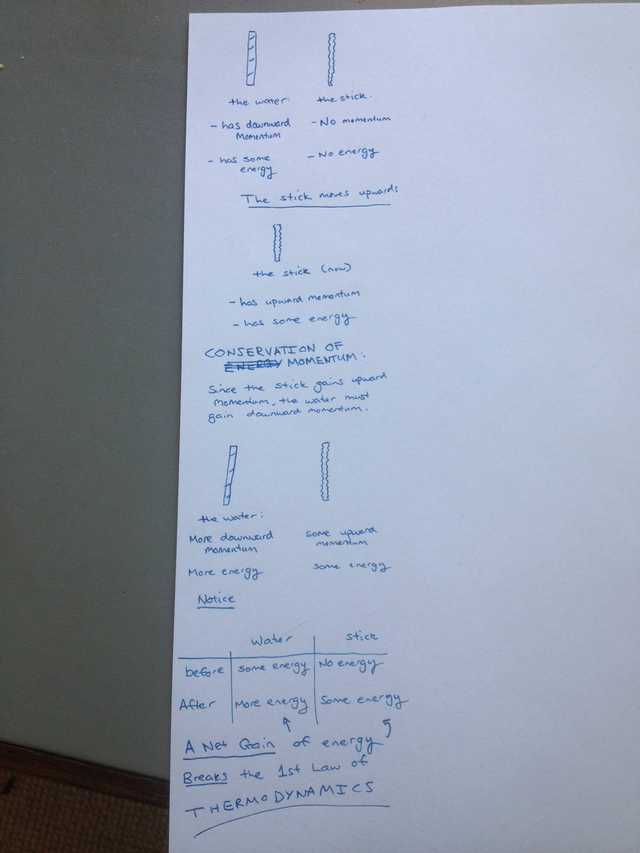 the water. the stick.
- has downward - No momentum
Momentum
- has some - No energy
energy
The stick moves upwards
the stick (now)
- has upward momentum
- has some energy
CONSERVATION OF
ENERGY MOMENTUM.
Since the stick gains upward
momentum, the water must
gain downward momentum.
the water:
More downward some upward
momentum momentum
More energy some energy
Notice
Water stick
before some energy No energy
After More energy Some energy
A Net Gain of energy
Breaks the 1st Law of
THERMODYNAMICS